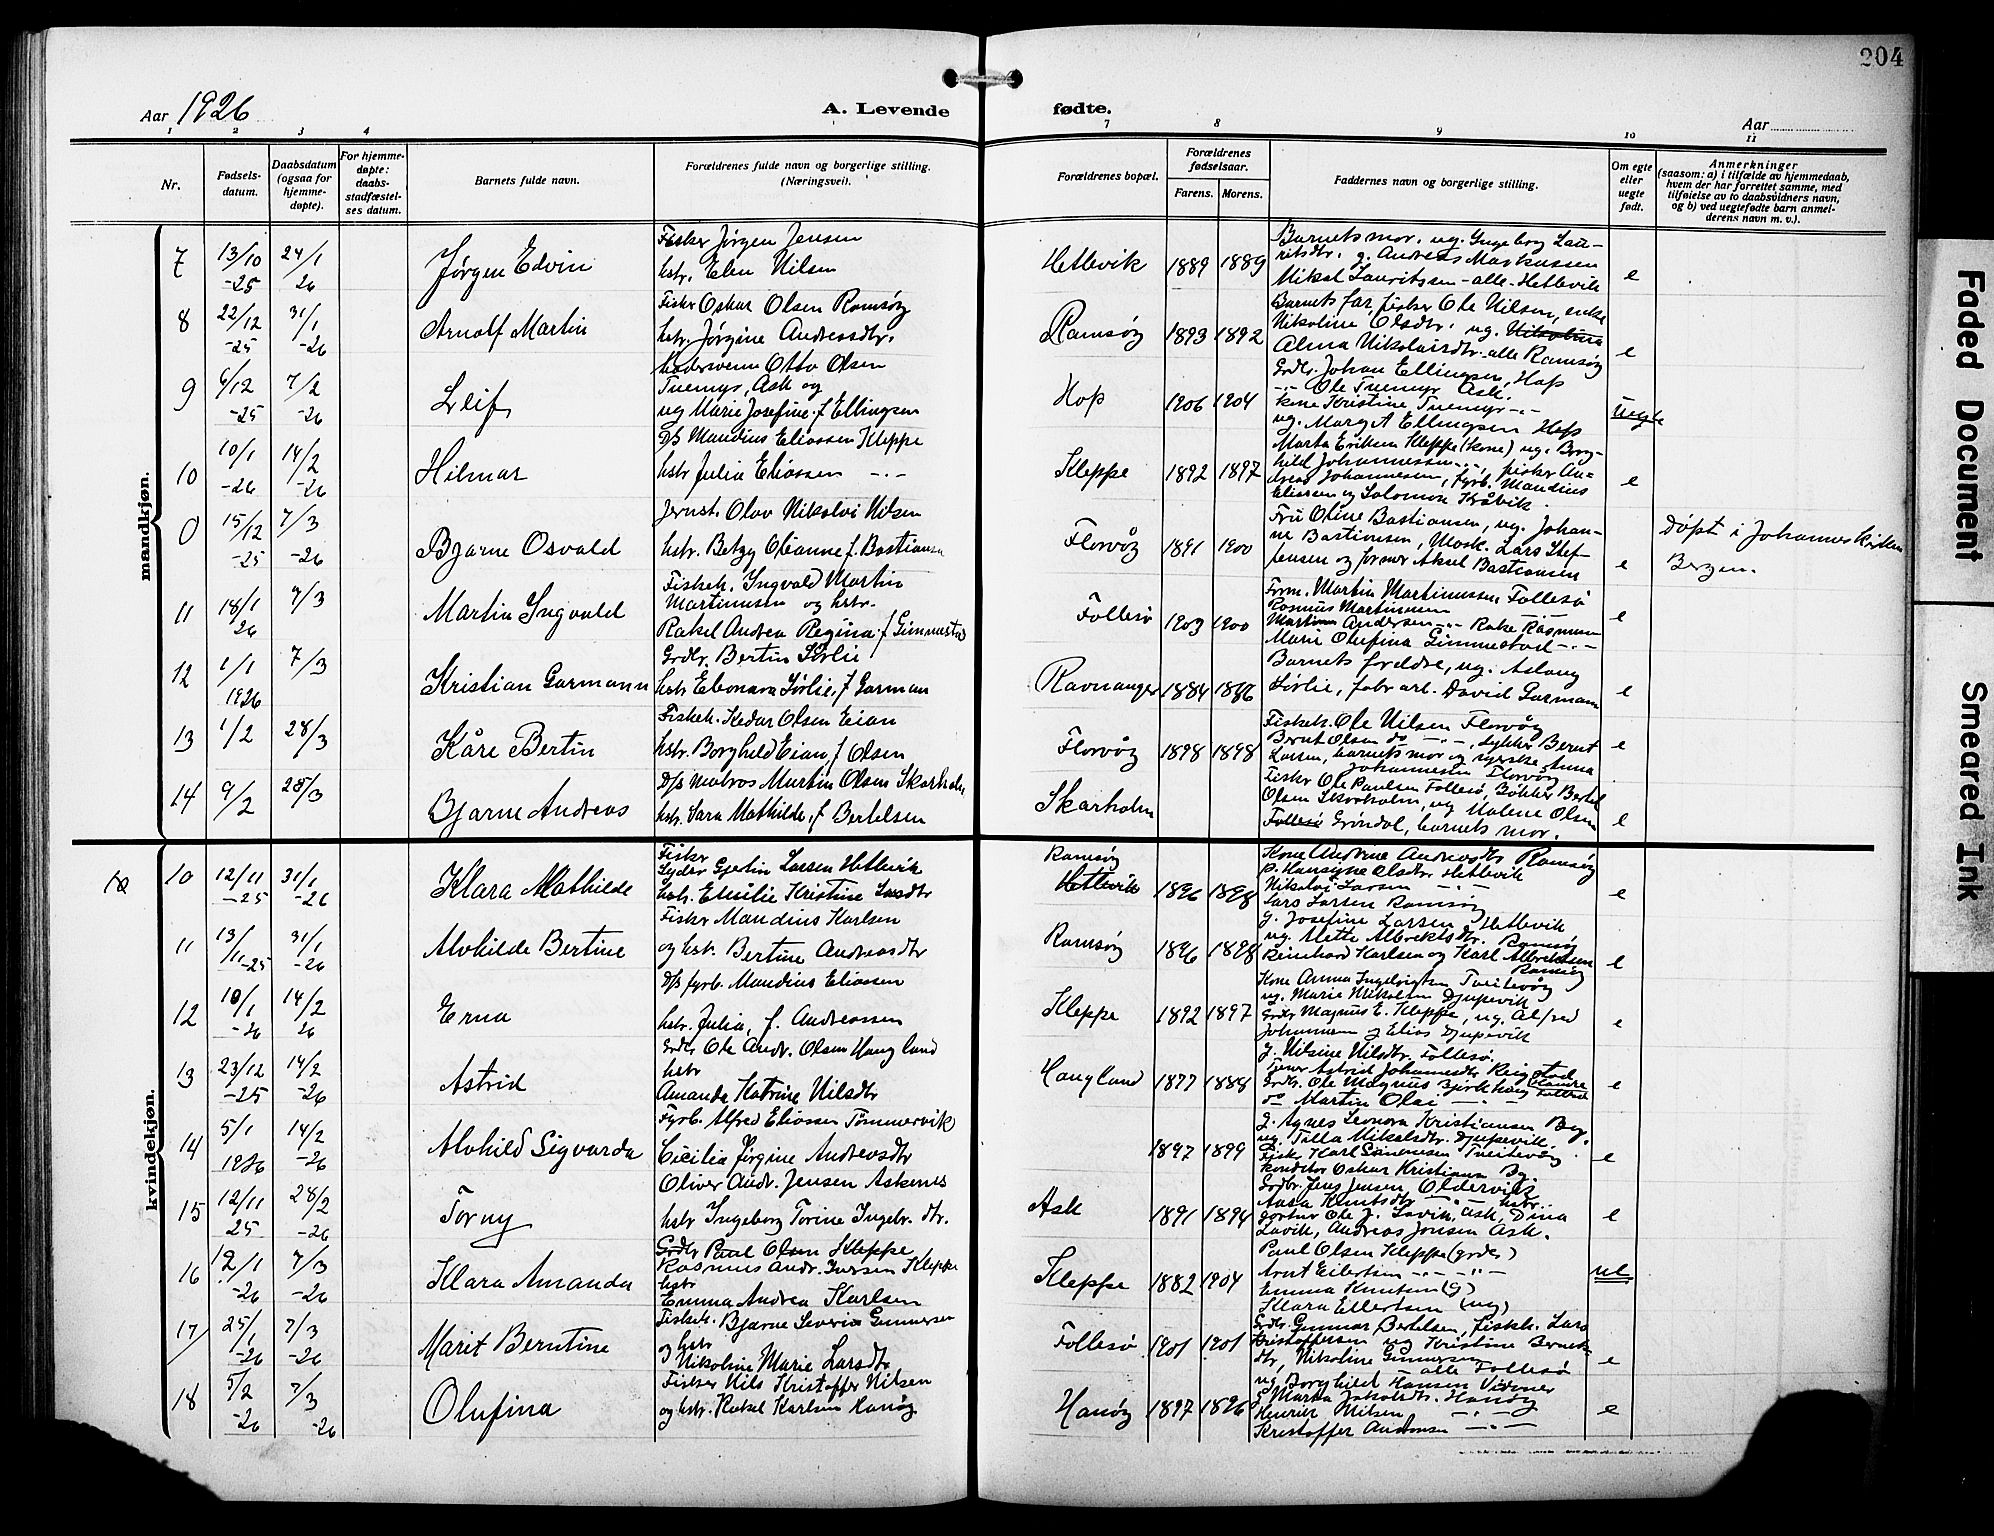 204
Aar 1926
A. Levende fødte.
Aar
1 2 3 4 7 8 9 10 11
Nr.
Fødselsdatum.
Daabsdatum (ogsaa for hjemmedøpte).
For hjemmedøpte: daabsstadfæstelses datum.
Barnets fulde navn.
Forældrenes fulde navn og borgerlige stilling. (Næringsvei).
Forældrenes bopæl.
Forældrenes fødselsaar.
Farens. Morens.
Faddernes navn og borgerlige stilling.
Om egte eller uegte født.
Anmerkninger
(saasom: a) i tilfælde av hjemmedaab,
hvem der har forrettet samme, med
tilføielse av to daabsvidners navn,
og b) ved uegtefødte barn anmel-
derens navn m. v.).
mandkjøn.
7 13/10 -25 24/1 26 Jørgen Edvin
Fisker Jørgen Jensen
hstr. Elen Nilsen
Hetlevik 1889 1889
Barnets mor, ug. Ingeborg Lau-
ritsdtr. g. Andreas Markussen
Mikal Lauritssen - alle Hetlevik
e
8 22/12 -25 31/1 -26 Arnolf Martin
Fisker Oskar Olsen Ramsøy
hstr. Jørgine Andreasdtr.
Ramsøy 1893 1892
Barnets far, fisker Ole Nilsen, enke
Nikoline Olsdtr. ug. Nikoline
Alma Nikolaisdtr. alle Ramsøy
e
9 6/12 -25 7/2 -26 Leif
Otto Olsen
Tuemyr, Ask og
ug Marie Josefine f Ellingsen
Hop 1906 1904
Grdbr. Johan Ellingsen, Hop
-"- Ole Tuemyr Ask.
kone Kristine Tuemyr -"-
ug. Margit Ellingsen Hop
Uegte
10 10/1 -26 14/2 -26 Hilmar
D/S Mandius Eliassen Kleppe
hstr Julia Eliassen -"-
Kleppe 1892 1897
Marta Eriksen Kleppe (kone) ug. Borg-
hild Johannessen -"-, fisker An-
dreas Johannesen, fyrb. Mandius
Eliassen og Salomon Kråvik.
e
0 15/12 -25 7/3 -26 Bjarne Osvald
Jernst. Olav Nikolai Nilsen
hstr. Betzy Olianne f. Bastiansen
Florvåg 1891 1900
Fru Oline Bastiansen, ug. Johan-
ne Bastiansen, Mask. Lars Stef-
fensen og former Aksel Bastiansen
e
Døpt i Johanneskirken
Bergen.
11 18/1 26 7/3 Martin Ingvald
Fiskeh. Ingvald Martin
Martinussen og hstr.
Rakel Andrea Regina f Gimmestad
Follesø 1903 1900
Form. Martin Martinussen Follesø
Rasmus Martinussen
Andersen -"- Rasmussen
Marie Olufina Gimmestad -"-
e
12 1/1 1926 7/3 Kristian Garmann
Grdbr. Bertin Sørlie
hstr Eleonora Sørlie, f Garman
Ravnanger 1884 1886
Barnets foreldre, ug. Aslaug
Sørlie, fabr arb. David Garmann
e
13 1/2 28/3 Kåre Bertin
Fiskeh. Kedar Olsen Eian
hstr. Borghild Eian, f Olsen
Florvåg 1898 1898
Fiskeh. Ole Nilsen Florvåg
Bernt Olsen do -"-, Bernt
Larsen, barnets mor og Anna
Johannessen Florvåg
e
14 9/2 28/3 Bjarne Andreas
D/S Matros Martin Olsen Skarholm
hstr. Sara Mathilde, f Bertelsen
Skarholm
Fisker Ole Paulsen Follesø, Bøkker Bertel
Olsen Skarholm, ug Malene Olsen
Follesø Grøndal, barnets mor.
e
kvindekjøn.
10 10 12/11 -25 31/1 -26 Klara Mathilde
Fisker
Lyder Gjertin Larsen Hetlevik
hstr. Emilie Kristine Larsdtr
Ramsøy
Hetlevik 1896 1898
Kone Andrine Andreasdtr Ramsøy
p. Hansine Olsdtr Hetlevik
Nikolai Larsen -"-
Lars Larsen Ramsøy
e
11 13/11 -25 31/1 -26 Alvhilde Bertine
Fisker Mandius Karlsen
og hstr. Bertine Andreasdtr
Ramsøy 1896 1898
g. Josefine Larsen Hetlevik
ug. Mette Albrektsdtr. Ramsøy
Reinhard Karlsen og Karl Albrektsen
Ramsøy
e
12 10/1 -26 14/2 26 Erna
D/S fyrb. Mandius Eliassen
hstr. Julia, f. Andreassen
Kleppe 1892 1897
Kone Anna Ingebrigtsen Tveitevåg
ug. Marie Nikolsen Djupevik
Grdbr Magnus E. Kleppe, ug. Alfred
Johannsen og Elias Djupevik
e
13 23/12 -25 14/2 -26 Astrid
Grdbr Ole Andr. Olsen Haugland
hstr
Amanda Katrine Nilsdtr
Haugland 1877 1888
g. Nilsine Nilsdtr. Follesø.
Tjener Astrid Johannesdtr Reigstad
Grdbr. Ole Magnus Bjørkhaug
do Martin Olai -"-
e
14 5/1 1926 14/2 -26 Alvhild Sigvarda
Fyrb. Alfred Eliassen Tömmervik
Cicilia Jørgine Andreasdtr
1897 1899
g. Agnes Leonora Kristiansen Bg.
ug. Tilla Mikalsdtr. Djupevik.
Fisk. Karl Simonsen Tveitevåg.
Konditor Oskar Kristiansen Bg.
e
15 12/11 25 28/2 -26 Torny
Oliver Andr. Jensen Askenes
hstr Ingeborg Torine Ingebr. dtr.
Ask 1891 1894
Grdbr. Jens Jensen Oldervik
Aasa Knutsdtr -"- hstr.
Ole J. Lavik, Ask, Dina
Lavik, Andreas Jensen Ask.
e
16 12/1 -26 7/3 -26 Klara Amanda
Grdbr Paul Olsen Kleppe
Rasmus Andr. Iversen Kleppe
hstr
Emma Andrea Karlsen
Kleppe 1882 1904
Paul Olsen Kleppe (grdbr)
Arnt Eilertsen -"- -"-
Emma Knutsen (g)
Klara Eilertsen (ug)
ue
17 25/1 -26 7/3 -26 Marit Berntine
Fiskeh. Bjarne Severin Gunnersen
og hstr
Nikoline Marie Larsdtr
Follesø 1901 1901
Grdbr. Gunnar Bertelsen, Fiskeh. Lars
Kristoffersen ug Kristine Bernts-
dtr, Nikoline Gunnersen
alle Follesø
e
18 5/2 -26 7/3 -26 Olufina
Fisker Nils Kristoffer Nilsen
og hstr. Rakel Karlsen Hanøy
Hanøy 1897 1896
ug Borghild Hansen Vidnner
g Marta Jakobsdtr. Hanøy
Henrik Nilsen -"-
Kristoffer Andersen -"-
e
Faded Document
Smeared Ink